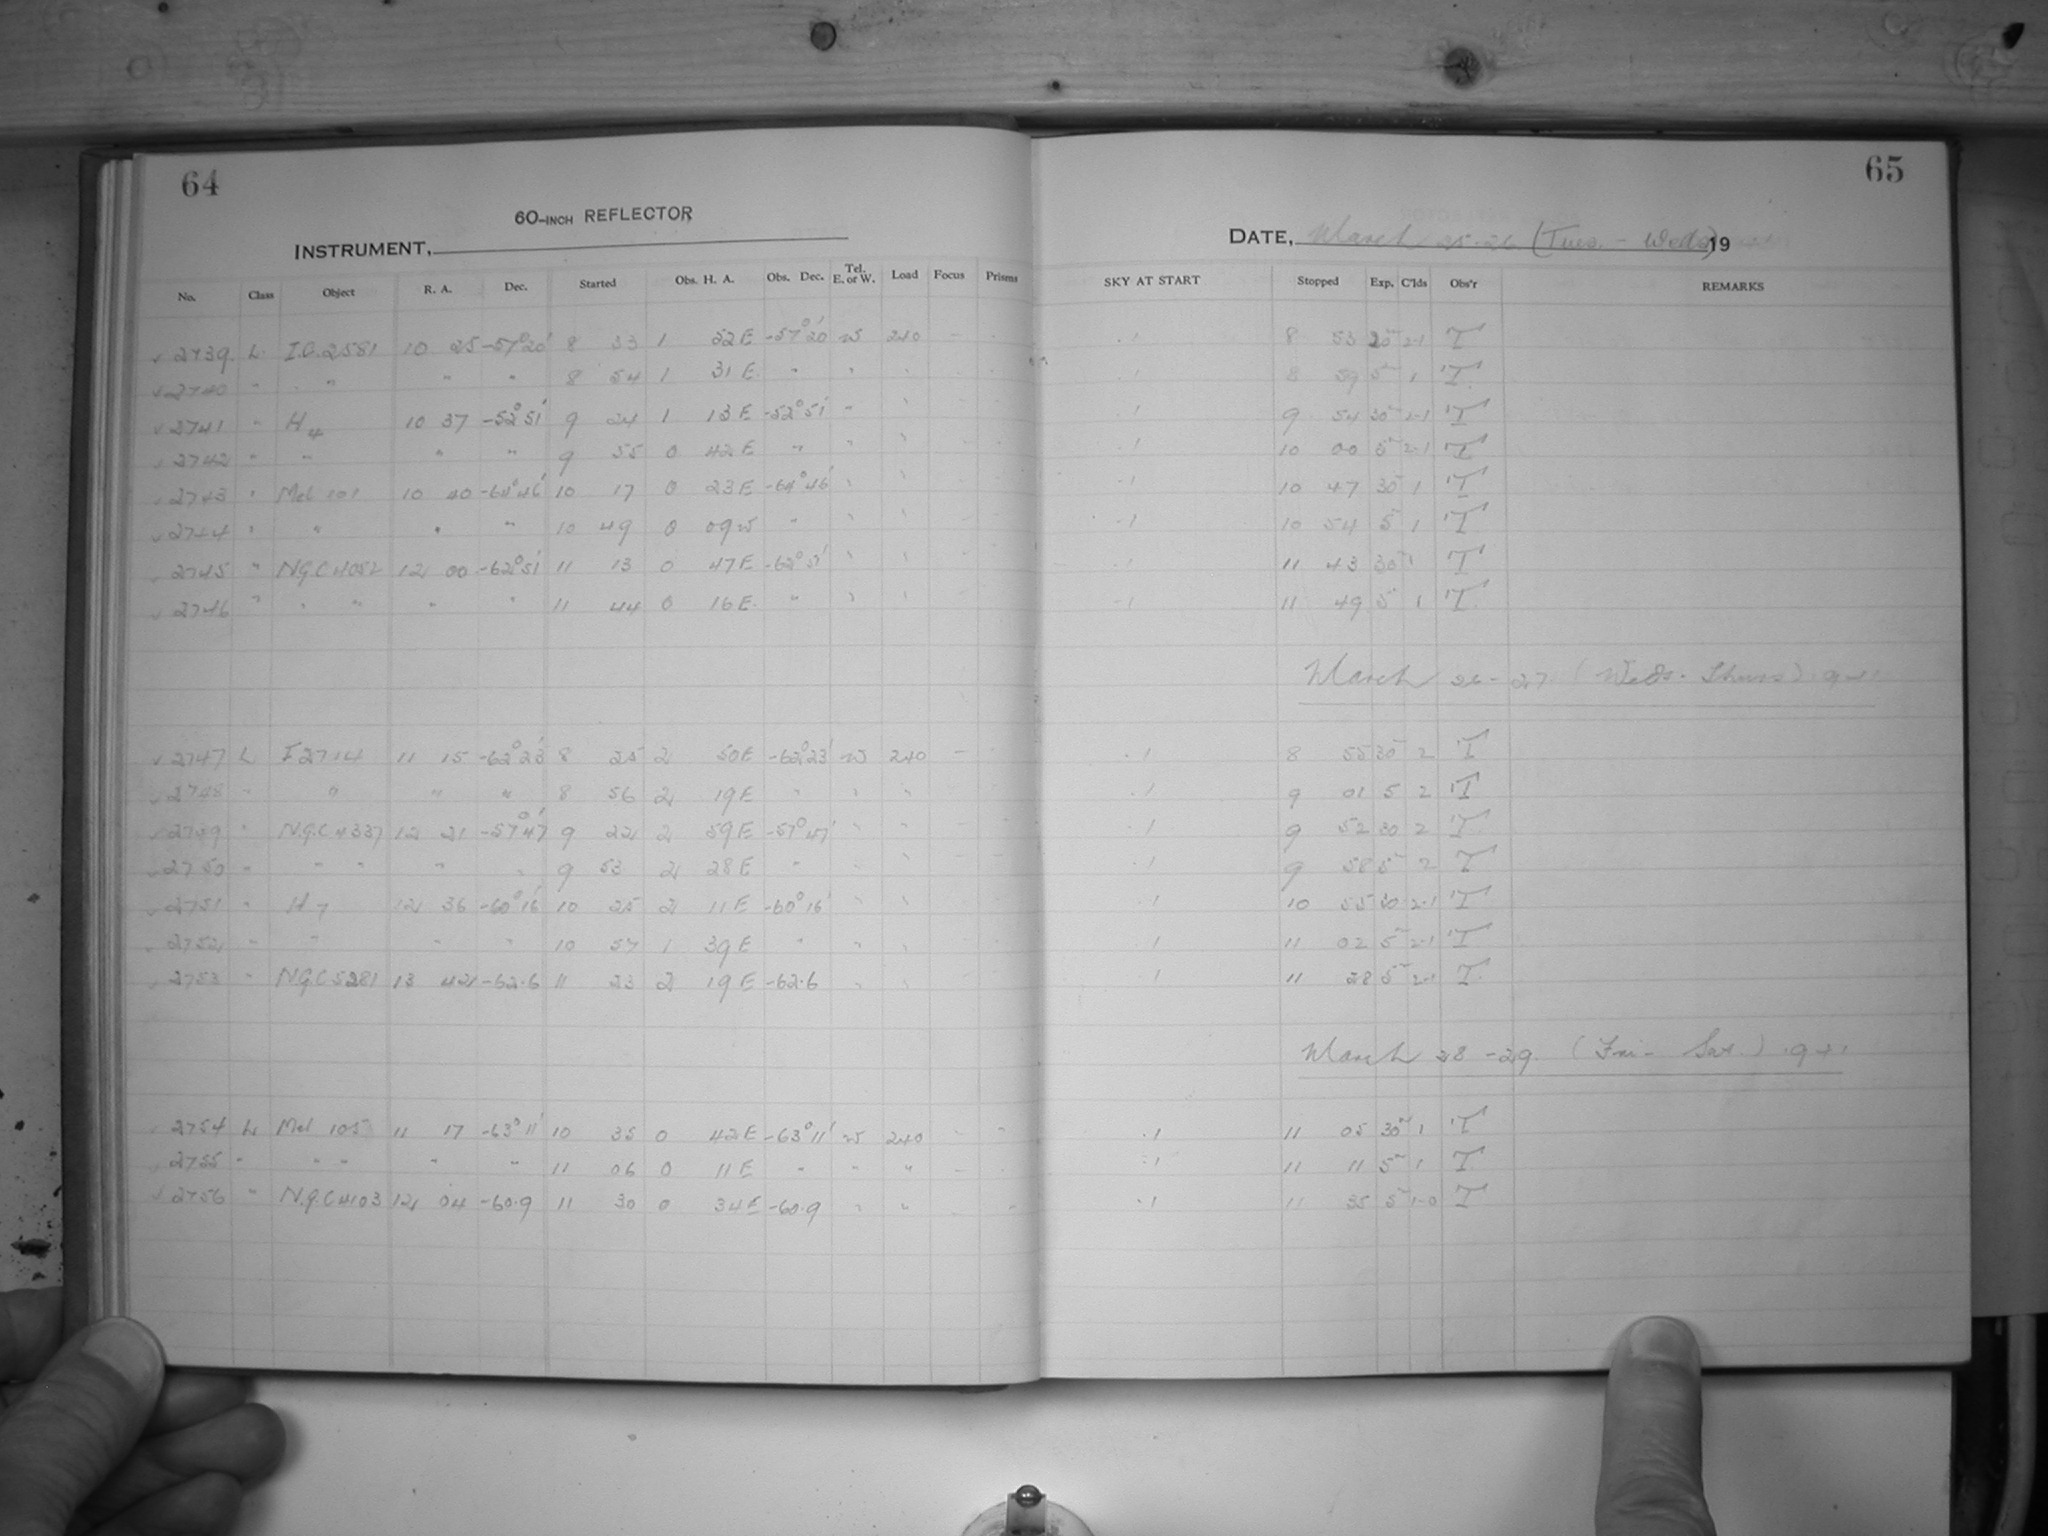 64
60-INCH REFLECTOR
INSTRUMENT,
No. Class Object R. A. Dec. Started Obs. H. A. Obs. Dec. Tel. E. or W. Load Focus Prisms
2739 L I.C.2581 10 25 -57°20' 8 33 1 52 E -57°20' W 240 –
2740 " " " " 8 54 1 31 E " " "
2741 " H4 10 37 -52°51' 9 24 1 13 E -52°51' " "
2742 " " " " 9 55 0 42 E " " "
2743 " Mel 101 10 40 -64°46' 10 17 0 23 E -64°46' " "
2744 " " " " 10 49 0 09 W " " "
2745 " N.G.C 4052 12 00 -62°51' 11 13 0 47 E -62°51' " "
2746 " " " " " 11 44 0 16 E " " "
2747 L I 2714 11 15 -62°23' 8 25 2 50 E -62°23' W 240 –
2748 " " " " 8 56 2 19 E " " "
2749 " N.G.C 4337 12 21 -57°47' 9 22 2 59 E -57°47' " "
2750 " " " " " 9 53 2 28 E " " "
2751 " H7 12 36 -60°16' 10 25 2 11 E -60°16' " "
2752 " " " " 10 57 1 39 E " " "
2753 " N.G.C 5281 13 42 -62.6 11 23 2 19 E -62.6 " "
2754 L Mel 105 11 17 -63°11' 10 35 0 42 E -63°11' W 240 – –
2755 " " " " " 11 06 0 11 E " " "
2756 " N.G.C 4103 12 04 -60.9 11 30 0 34 E -60.9 " "
65
DATE, March 25-26 (Tues. - Weds) 19
SKY AT START Stopped Exp. C'lds Obs'r REMARKS
.1 8 53 20m 2-1 T
.1 8 59 5m 1 T
.1 9 54 30m 2-1 T
.1 10 00 5m 2-1 T
.1 10 47 30m 1 T
.1 10 54 5m 1 T
.1 11 43 30m 1 T
.1 11 49 5m 1 T
March 26-27 (Weds. Thurs) 1941
.1 8 55 30m 2 T
.1 9 01 5 2 T
.1 9 52 30 2 T
.1 9 58 5m 2 T
.1 10 55 30 2-1 T
.1 11 02 5m 2-1 T
.1 11 28 5m 2-1 T
March 28-29. (Fri - Sat.) 1941
.1 11 05 30m 1 T
.1 11 11 5m 1 T
.1 11 35 5m 1-0 T